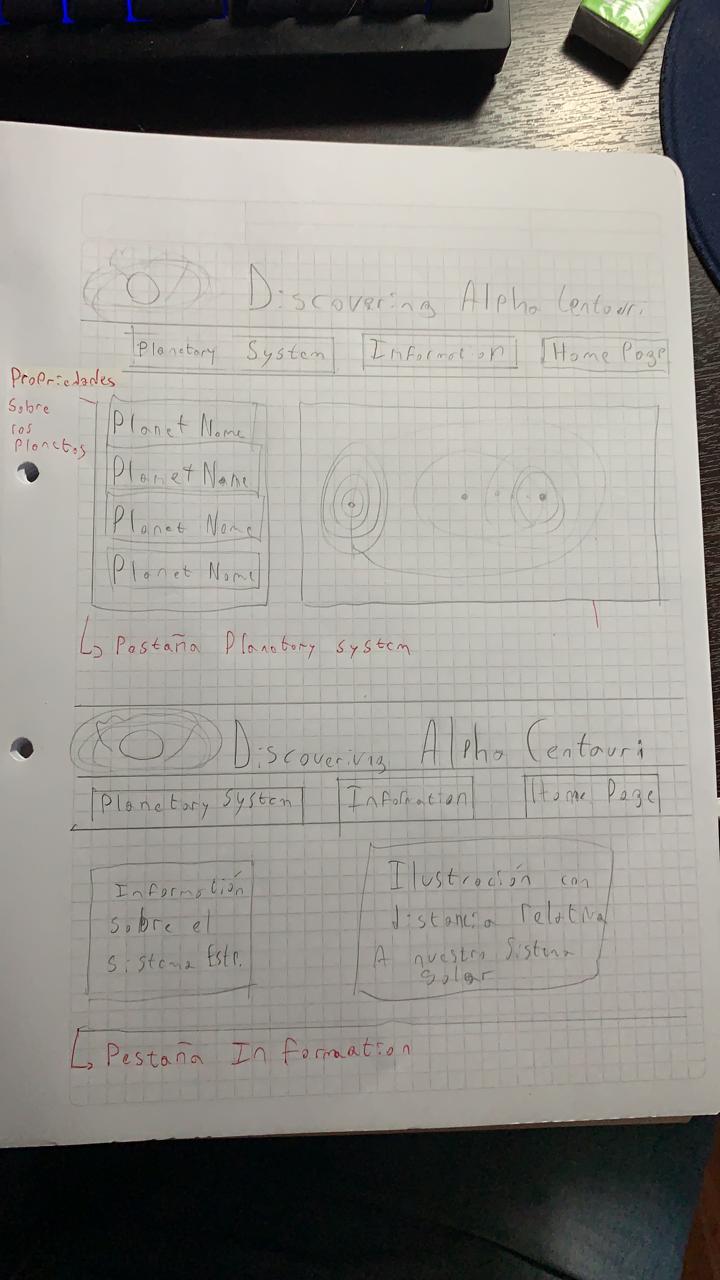 Discovering Alpha Centauri
Planetary System Information Home Page
Propriedades
sobre
los
planetas
Planet Name
Planet Name
Planet Name
Planet Name
Pestaña Planetary system
Discovering Alpha Centauri
Planetary System Information Home Page
Información
sobre el
sistema Estr.
Ilustración con
distancia relativa
A nuestro Sistema
Solar
Pestaña Information